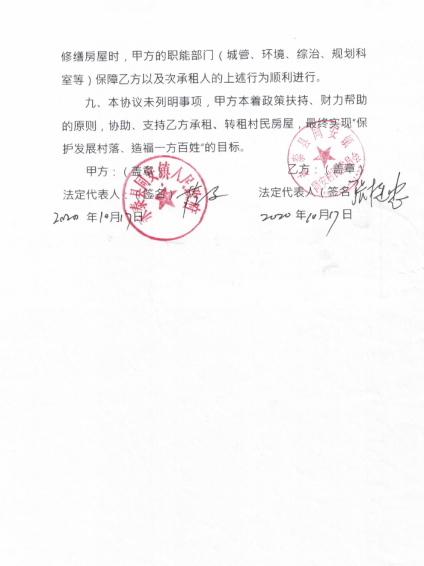 修缮房屋时，甲方的职能部门（城管、环境、综治、规划科
室等）保障乙方以及次承租人的上述行为顺利进行。
九、本协议未列明事项，甲方本着政策扶持、财力帮助
的原则，协助、支持乙方承租、转租村民房屋，最终实现“保
护发展村落、造福一方百姓”的目标。
甲方：（盖章 乙方：（盖章
法定代表人（签名 法定代表人（签名
2020年10月17日 2020年10月17日